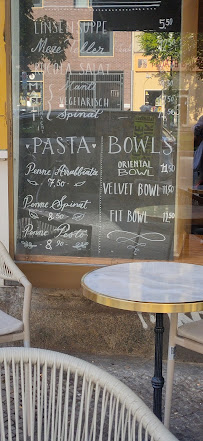 LINSENSUPPE 5.50
Meze Teller
SALAT
Manti
VEGETARISCH
Spinat
♥ PASTA ♥
Penne Arrabbiata
7,50
Penne Spinat
8,50
Penne Pesto
8,90
BOWLS
ORIENTAL
BOWL 11,50
VELVET BOWL 11,50
FIT BOWL 11,50